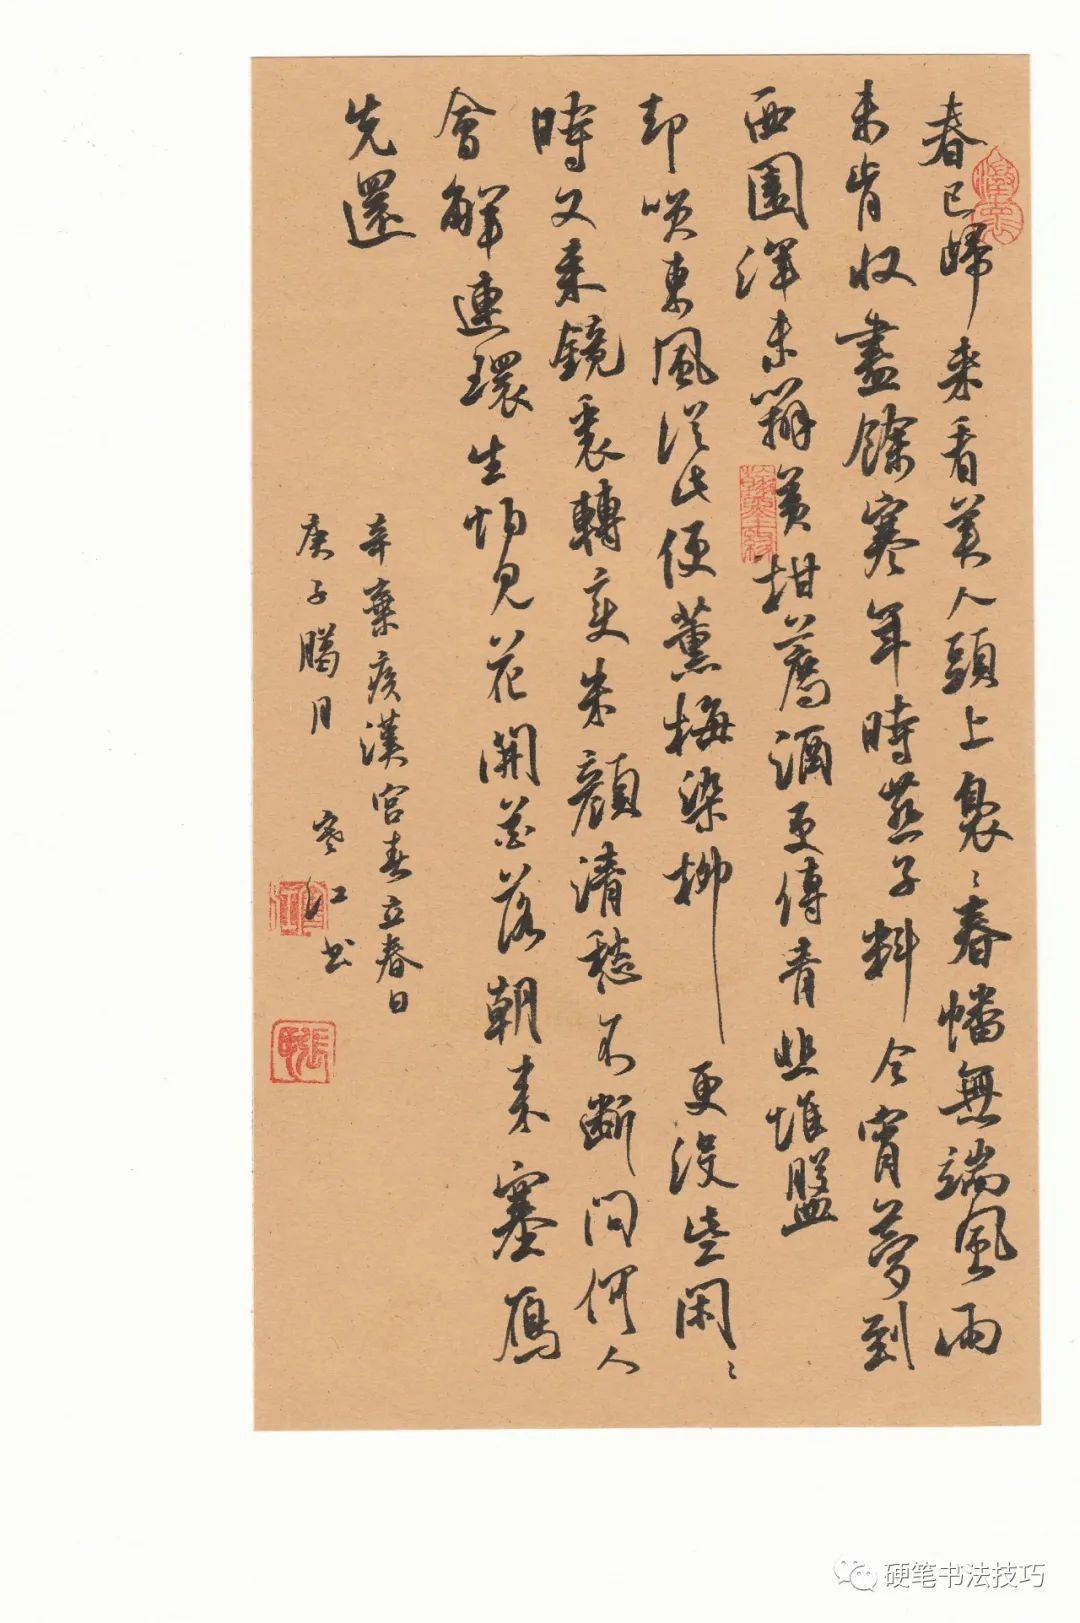 春已歸來看美人頭上裊〻春幡無端風雨
未肯收盡餘寒年時燕子料今宵夢到
西園渾未辦黃柑薦酒更傳青韭堆盤
却笑東風從此便薰梅染柳更沒些閑〻
時又來鏡裏轉變朱顏清愁不斷問何人
會解連環生怕見花開花落朝來塞雁
先還
辛棄疾漢宮春立春日
庚子臘月 寒江書
硬笔书法技巧